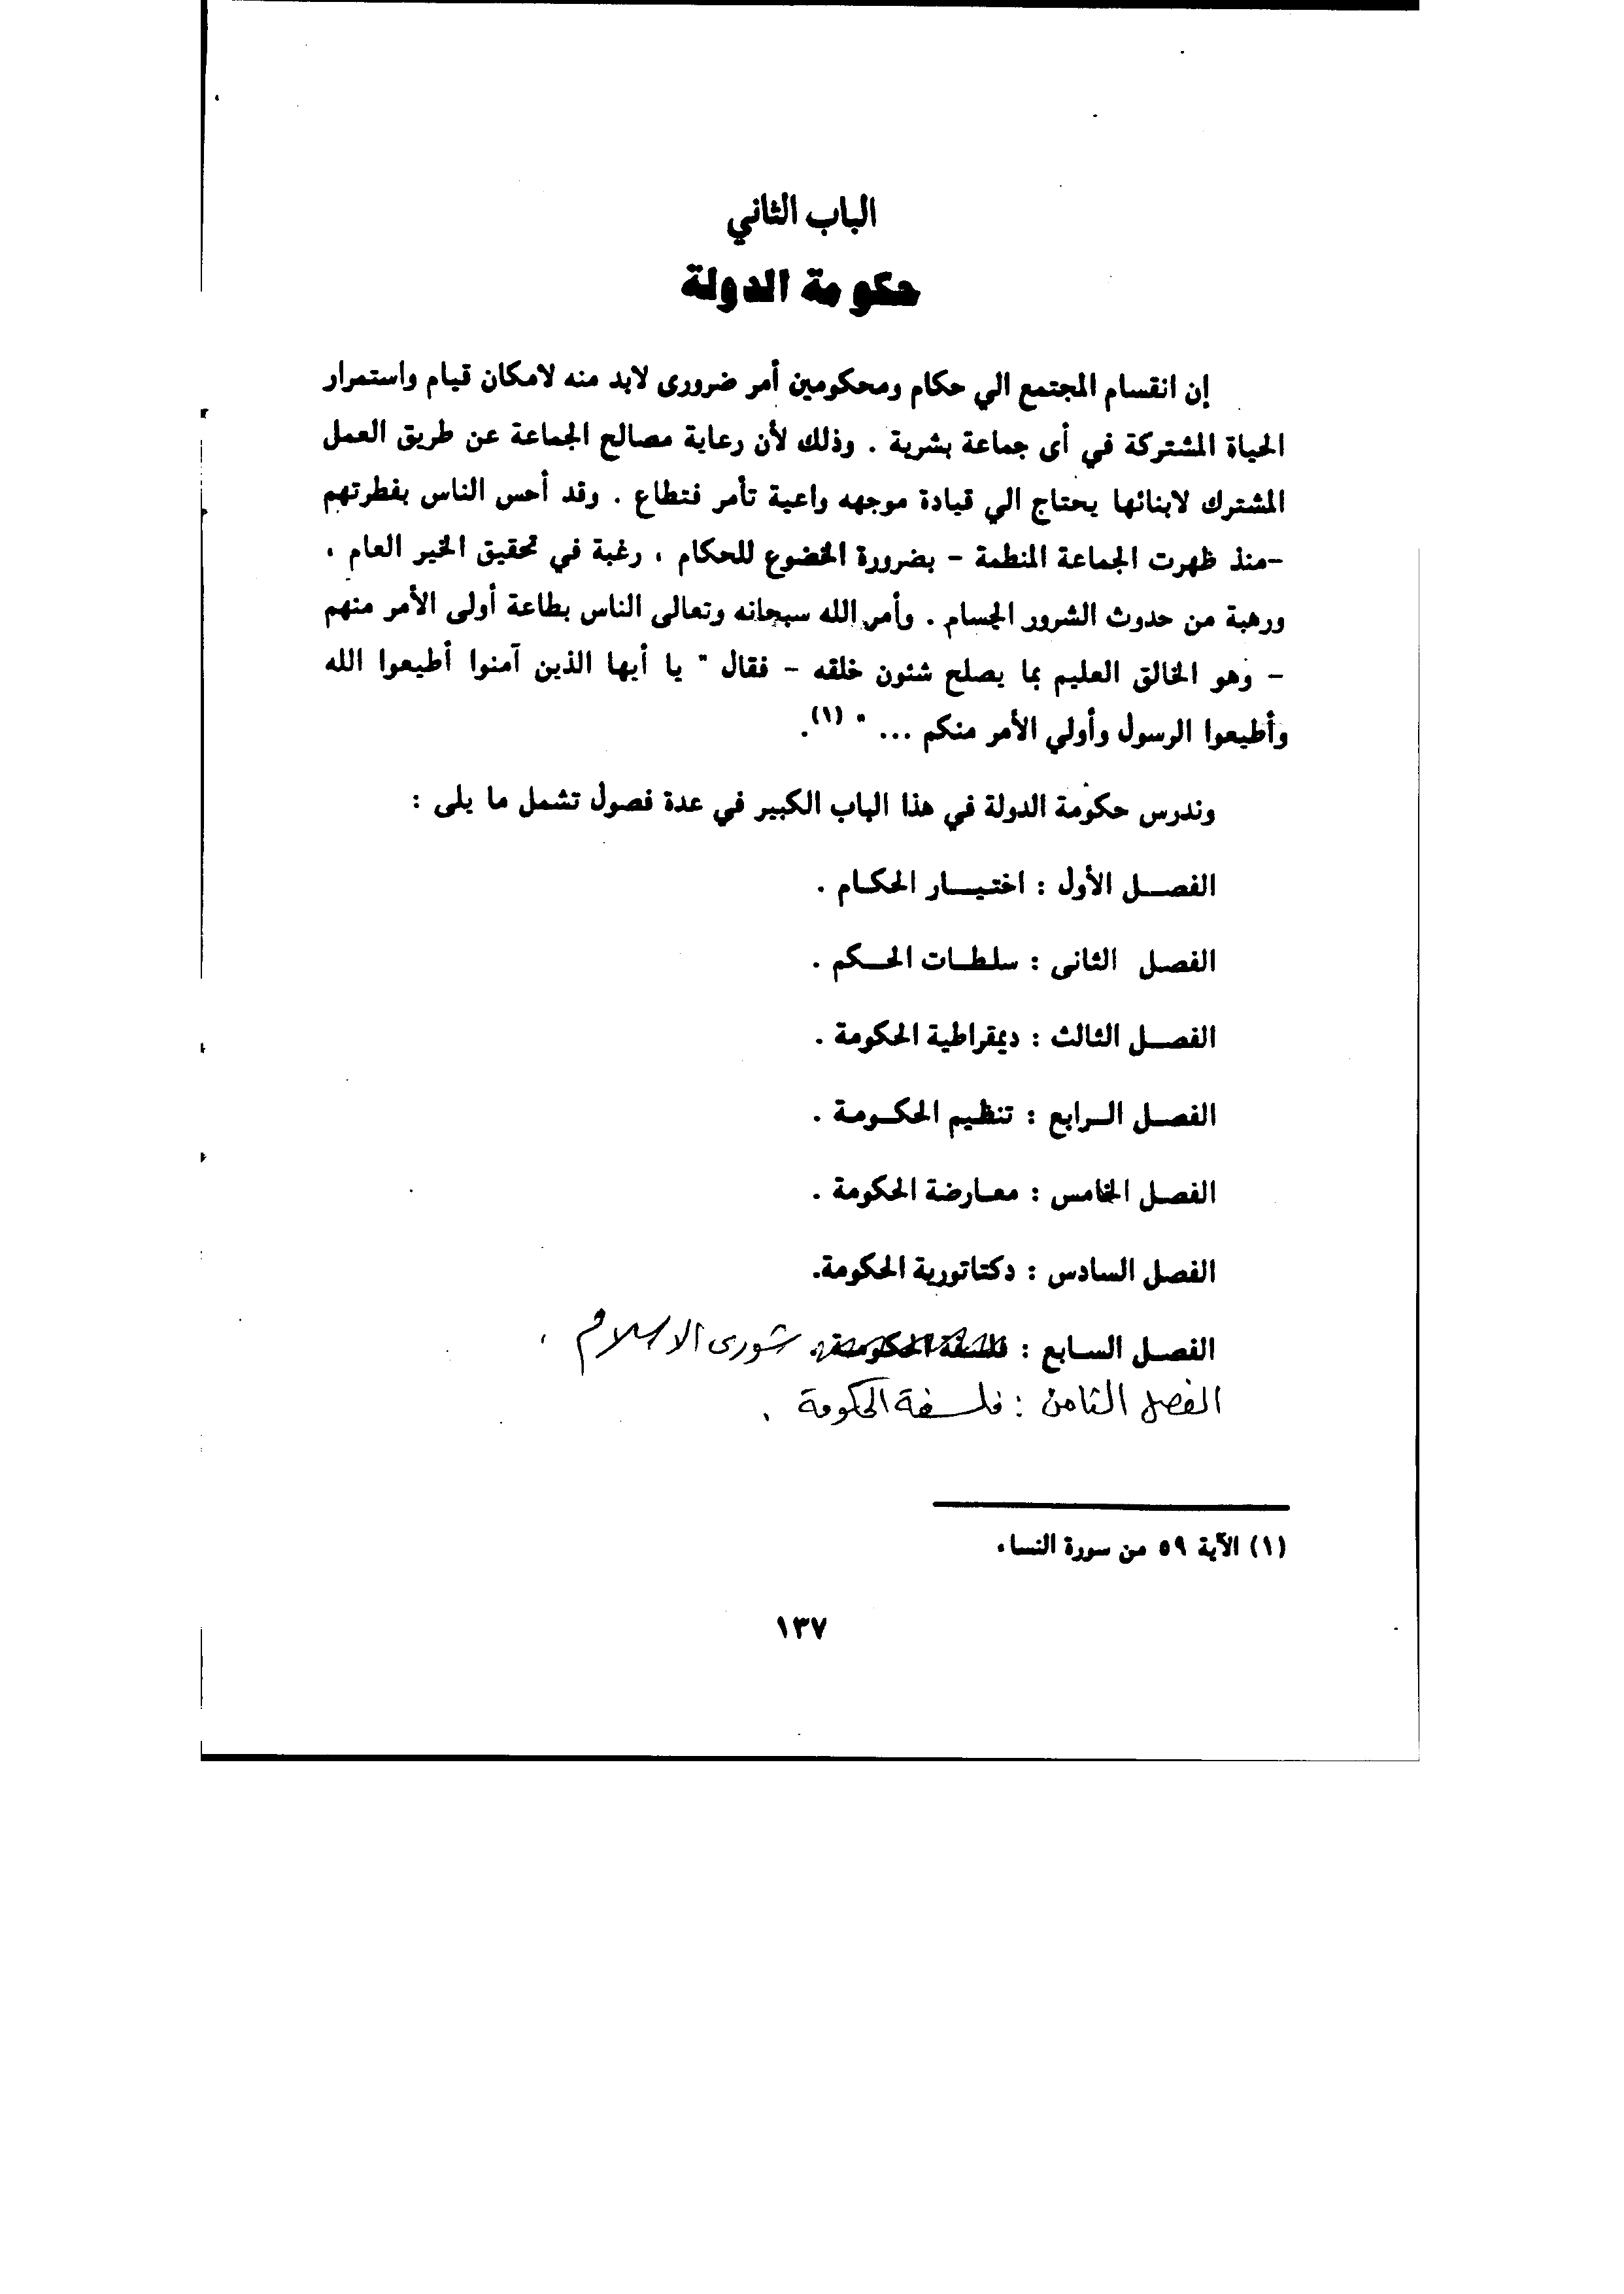 الباب الثاني
حكومة الدولة
إن انقسام المجتمع الي حكام ومحكومين أمر ضرورى لابد منه لامكان قيام واستمرار
الحياة المشتركة في أى جماعة بشرية . وذلك لأن رعاية مصالح الجماعة عن طريق العمل
المشترك لابنائها يحتاج الي قيادة موجهه واعية تأمر فتطاع . وقد أحس الناس بفطرتهم
-منذ ظهرت الجماعة المنظمة - بضرورة الخضوع للحكام ، رغبة في تحقيق الخير العام ،
ورهبة من حدوث الشرور الجسام . وأمر الله سبحانه وتعالى الناس بطاعة أولى الأمر منهم
- وهو الخالق العليم بما يصلح شئون خلقه - فقال " يا أيها الذين آمنوا أطيعوا الله
وأطيعوا الرسول وأولي الأمر منكم ... " (١).
وندرس حكومة الدولة في هذا الباب الكبير في عدة فصول تشمل ما يلى :
الفصــل الأول : اختيــــار الحكـام .
الفصل الثانى : سلطــات الحــكم .
الفصــل الثالث : ديمقراطية الحكومة .
الفصــل الــرابع : تنظيم الحكــومـة .
الفصـل الخامس : معـارضة الحكومة .
الفصل السادس : دكتاتورية الحكومة.
الفصــل الســابع : فلسفة الحكومــة . شورى الاسلام .
الفصل الثامن : فلسفة الحكومة .
(١) الآية ٥٩ من سورة النساء
١٣٧